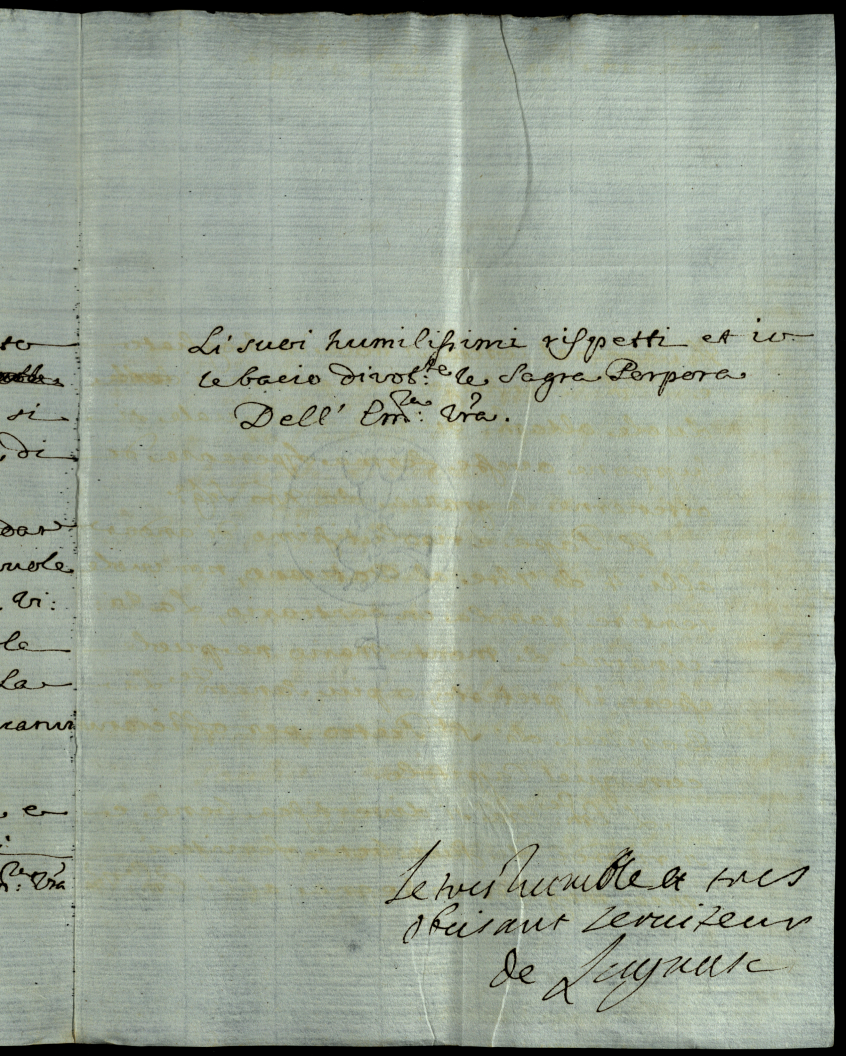 to
si
di
dar
vuole
Vi:
le
La
e
Vr̃a
Li suoi humilissimi rispetti et io
le bacio divot:te le Sagra Porpora
Dell' Em:za Vr̃a.
Le tres humble et tres
obeisant serviteur
de